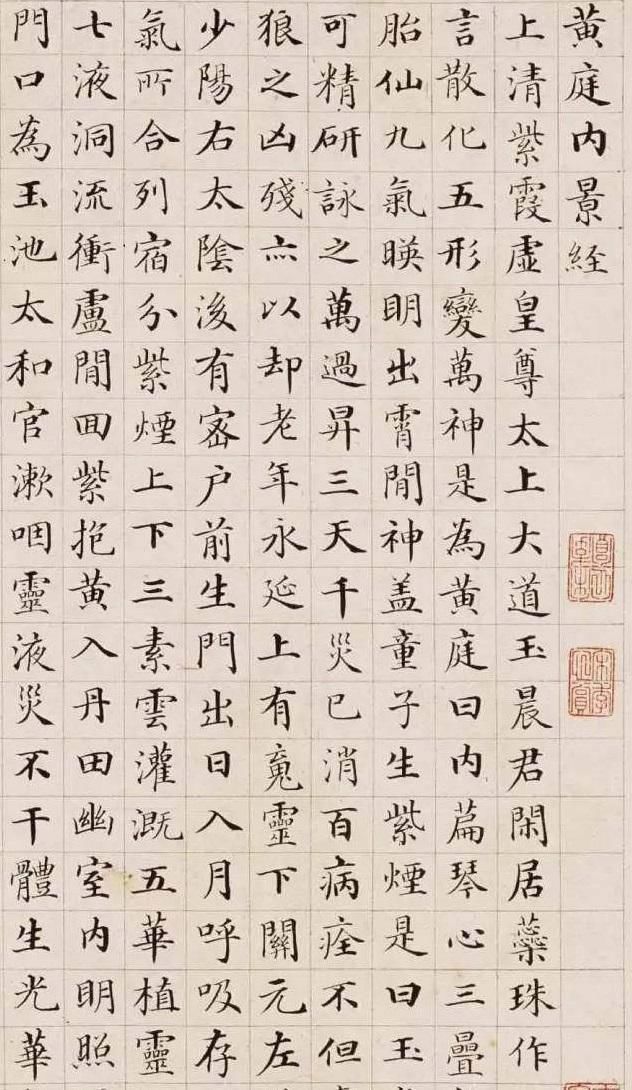 黄庭内景経
上清紫霞虛皇尊太上大道玉晨君閑居蘂珠作
言散化五形變萬神是為黃庭曰内萹琴心三疊
胎仙九氣暎明出霄閒神盖童子生紫煙是曰玉
可精研詠之萬過昇三天千災已消百病痊不但
狼之凶殘亦以却老年永延上有䰟靈下關元左
少陽右太陰後有密户前生門出日入月呼吸存
氣所合列宿分紫煙上下三素雲灌溉五華植靈
七液洞流衝廬閒回紫抱黃入丹田幽室内明照
門口為玉池太和官漱咽靈液災不干體生光華